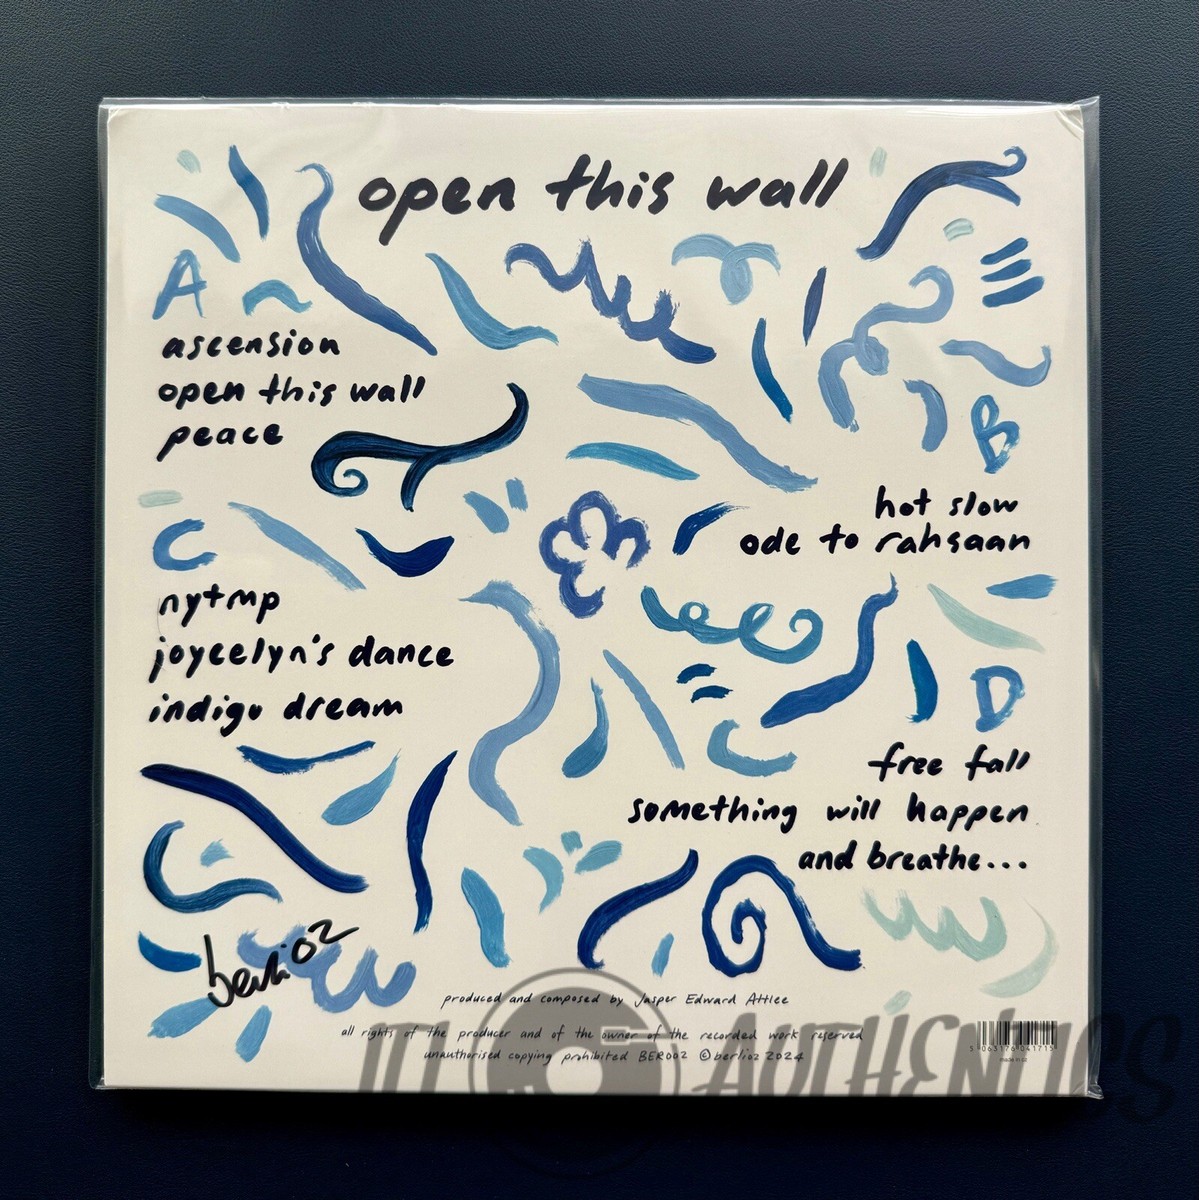 open this wall
A
ascension
open this wall
peace
B
hot slow
ode to rahsaan
C
nytmp
joycelyn's dance
indigo dream
D
free fall
something will happen
and breathe...
berlioz
produced and composed by Jasper Edward Attlee
all rights of the producer and of the owner of the recorded work reserved
unauthorised copying prohibited BER002 ©berlioz 2024
5 063176 041715
AUTHENTICS